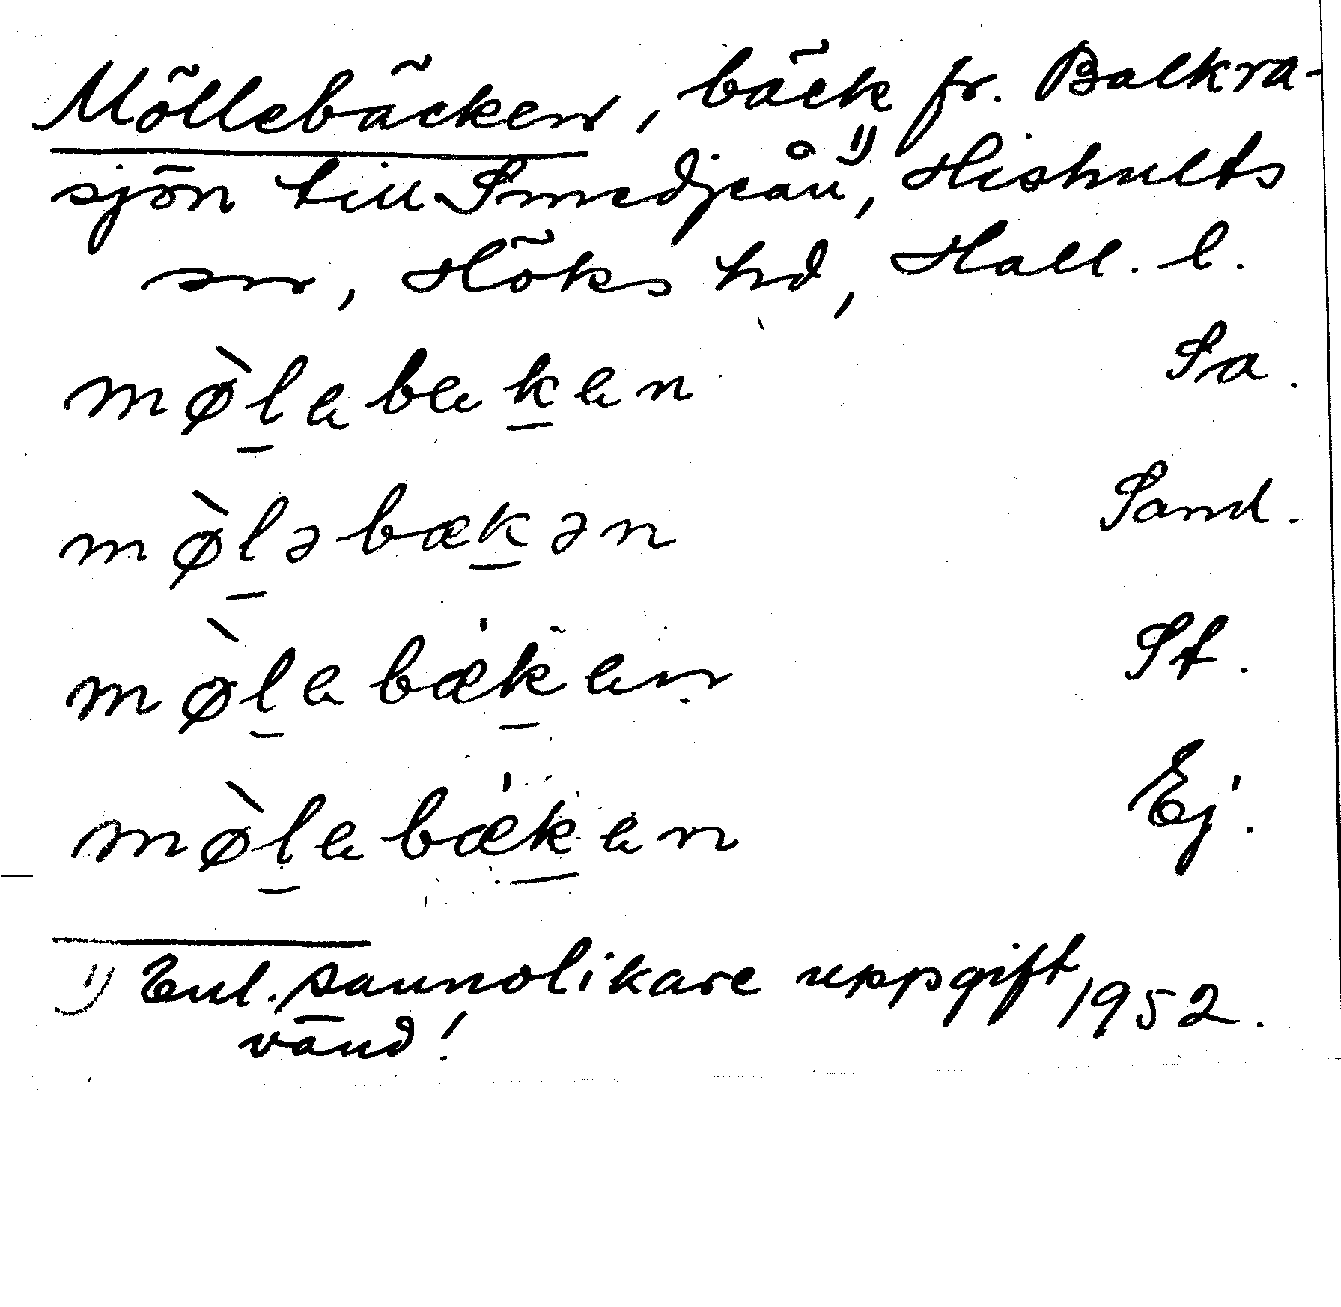 Möllebäcken, bäck fr. Balkra-
sjön till Smedjeån¹⁾, Hishults
sn, Höks hd, Hall. l.
mø̀l̠abak̠an Sa.
mø̀l̠əbæk̠ən Sand.
mø̀l̠abæ̍k̠an St.
mø̀l̠abæ̍k̠an Ej.
¹⁾ Enl. sannolikare uppgift 1952.
vänd!